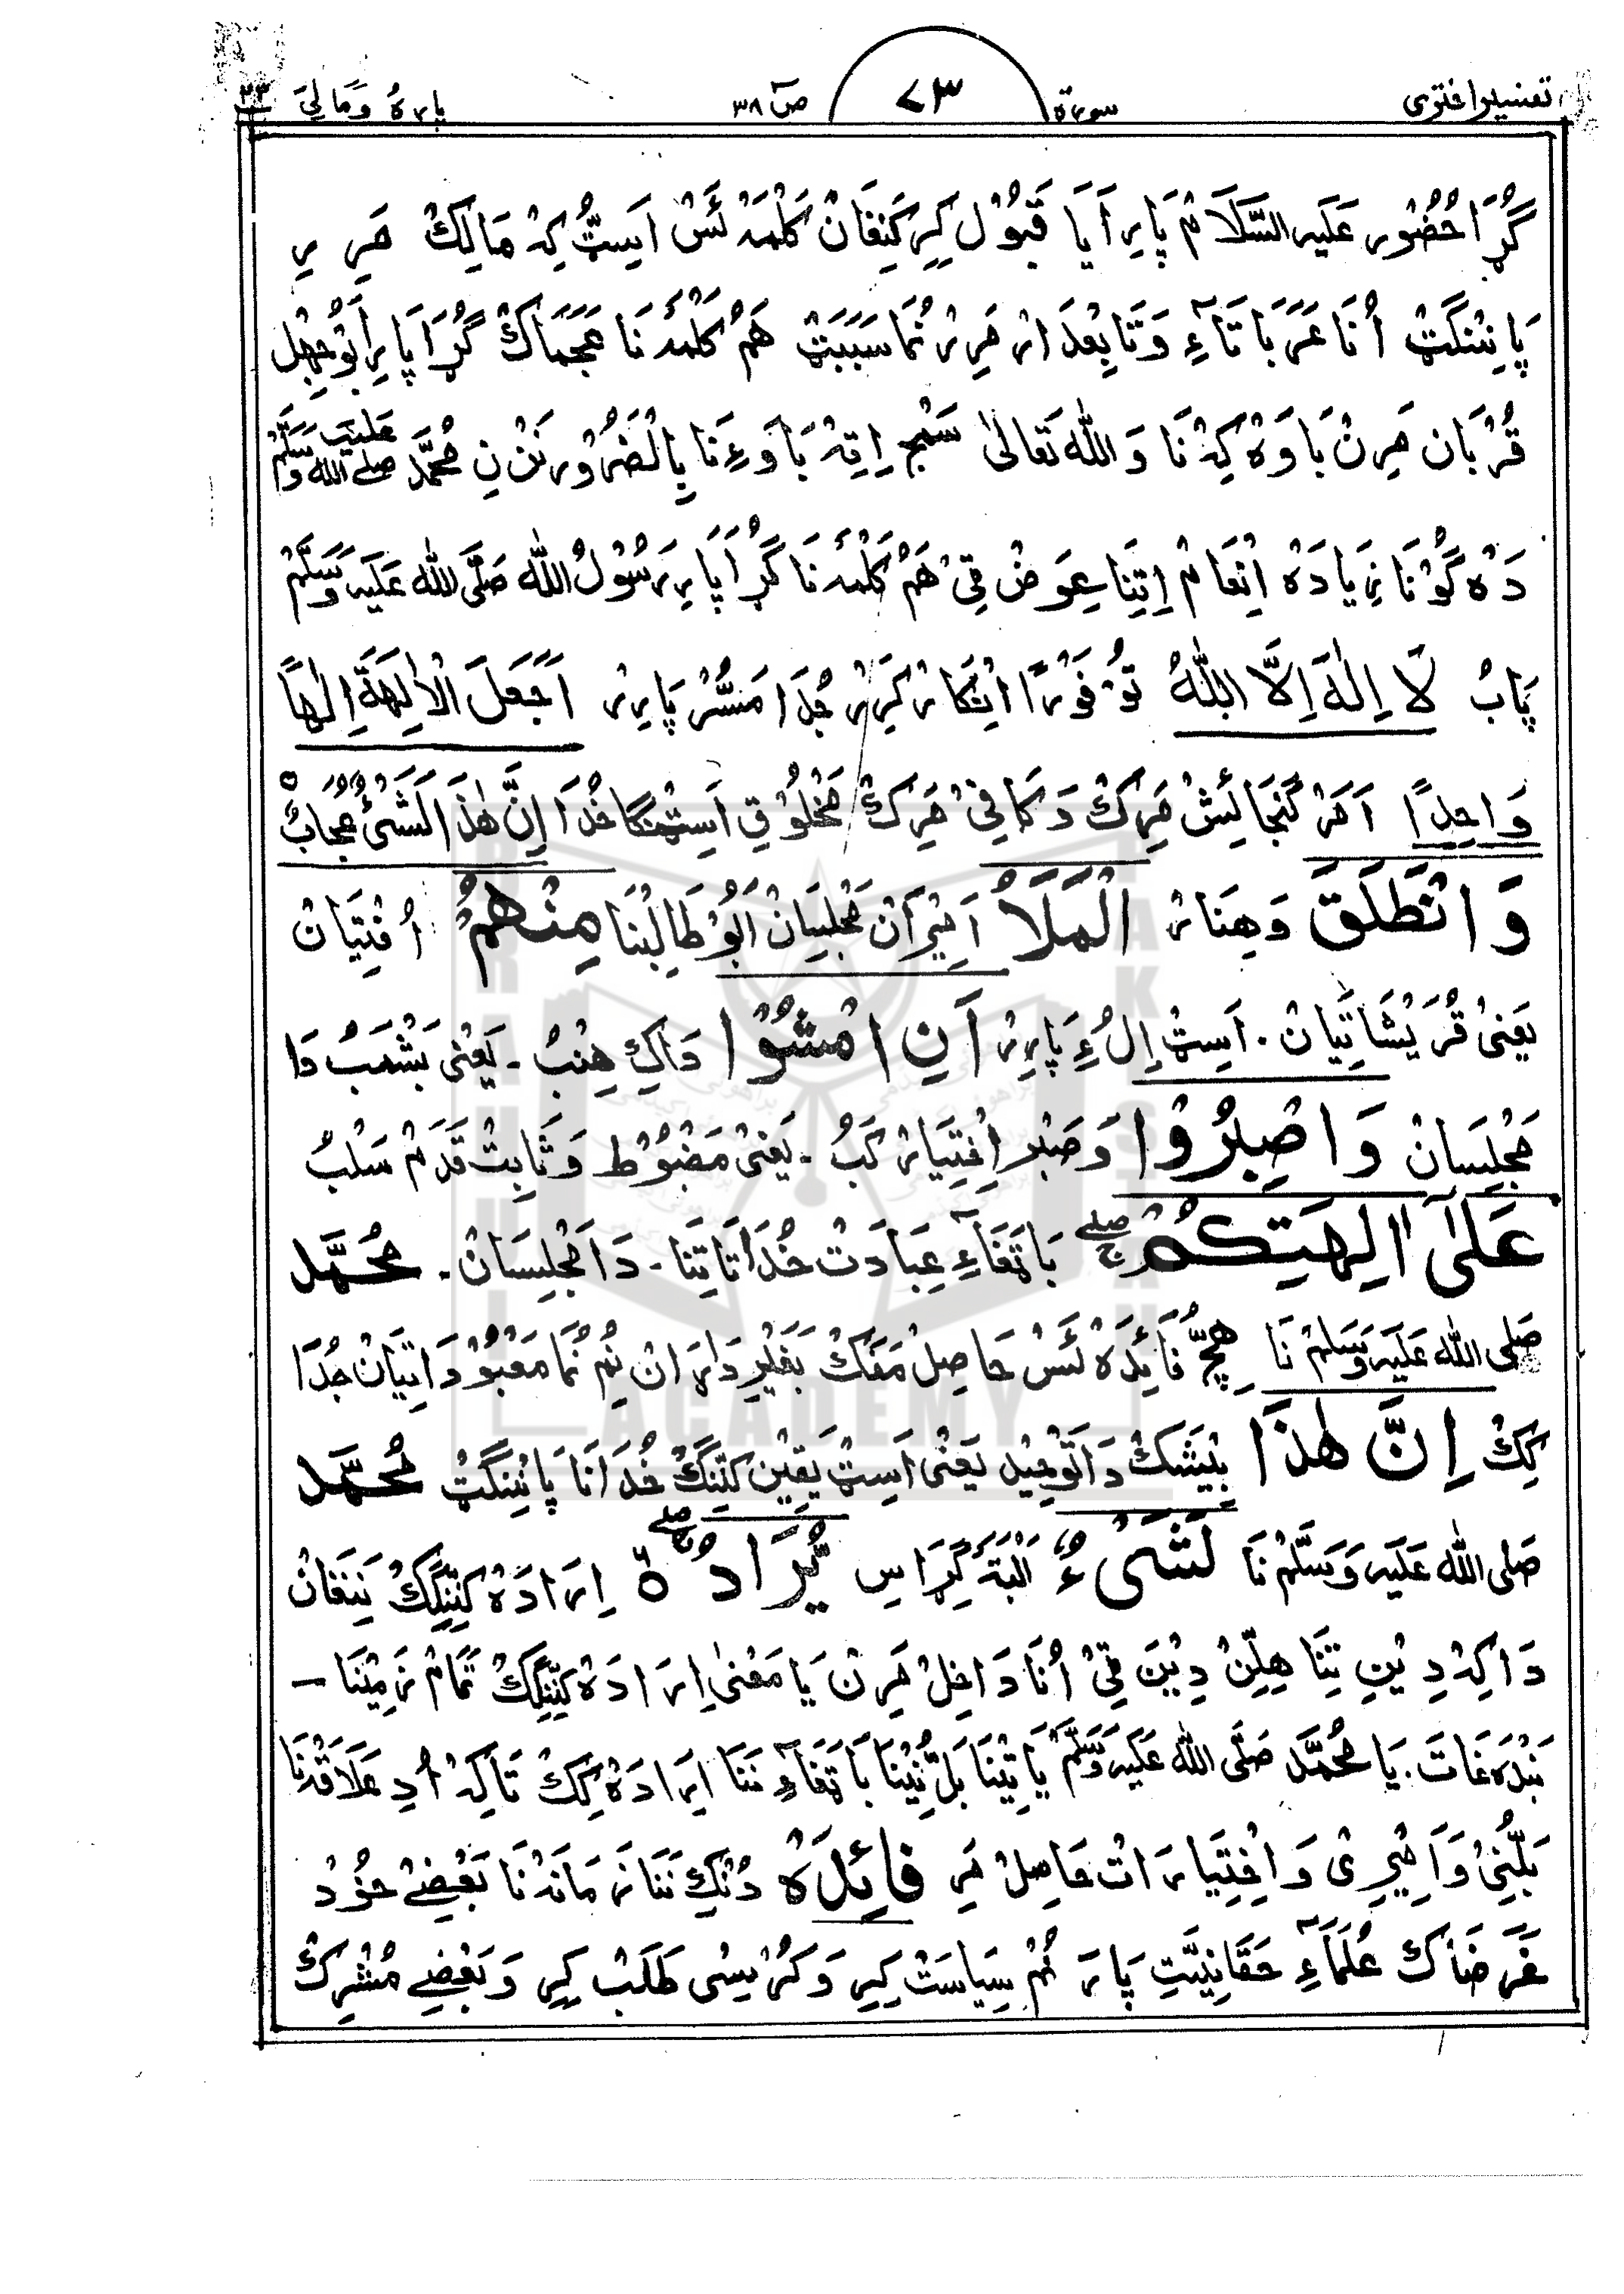 تفسیر اختری سورۃ ۷۳ صٓ ۳۸ پارہ وَمَالِیَ ۲۳
گُڑَا حُضُور عَلَیہِ السَّلَامْ پَارِ آیَا قَبُوْل کِرِ کَنِفَانْ کَلْمَہ ئَسْ اَسِٹُّ کِہ مَالِکْ مَرِ رِ
پَانِنْنگَٹْ اُنَا عَرَبَاتَآءِ وَتَابِعْدَارْ مَرِرْ نُمَا سَبَبَٹْ ہَمْ کَلْمَہ نَا عَجَمَاکْ گُڑَا پَارِ اَبُوْجَہل
قُرْبَان مَرِنْ بَاوَہْ کِہْ نَا وَاللہِ تَعَالیٰ بَاوَءِ نَا بِالْضَرُوْر نَنْ نِ مُحَمَّد صلی اللہ علیہ وسلم
دَہْ گُوْنَا زِیَادَہْ اِنْعَامْ اِتِنَا عِوَضْ ٹِیْ ہَمْ کَلْمَہ نَا گُڑَا پَارِ رَسُوْلُ اللہِ صَلَّی اللہ عَلَیہِ وَسَلَّمْ
پَابُ لَا اِلٰہَ اِلَّا اللہُ تَوْ فَوْرًا اِنْکَارْ کَرِرْ جُدَا مَسُّرْ پَارِرْ اَجَعَلَ الْاٰلِهَةَ اِلٰهًا
وَاحِدًا اَمَرْ گُنجَائِشْ مَرِکْ وَکَافِیْ مَرِکْ مَخْلُوْقِ اَسِٹْ خُدَا اِنَّ هٰذَا لَشَیْءٌ عُجَابٌ
وَانْطَلَقَ وَهِنَارْ الْمَلَأُ اَمِیْرَانْ مَجْلِسَانْ اَبُوْ طَالِبْنَا مِنْهُمْ اُفْتِیَانْ
یَعنیٰ قُرَیْشَاتِیَانْ۔ اَسِٹْ اِلُ ءِ پَارِرْ اَنِ امْشُوْا دَاکِ هِنْبُ۔ یَعْنٰی بَشْمَبُ دَا
مَجْلِسَانْ وَاصْبِرُوْا وَصَبْر اِفْتِیَارْ کَبُ۔ یَعْنٰی مَضْبُوْط وَثَابِتْ قَدَمْ سَلْبُ
عَلٰٓی اٰلِهَتِكُمْ صلے ج بَاتَهَفَآءِ عِبَادَتْ خُدَاتَاتِنَا۔ دَا مَجْلِسَانْ۔ مُحَمَّد
صَلی اللہ عَلَیہِ وَسَلَمْ نَا هِچّ فَائِدَہْ ئَسْ حَاصِلْ مَفَکْ بَغَیْرِ دَارَانْ نُمْ نُمَا مَعْبُوْدَاتِیَانْ جُدَا
کِکْ اِنَّ هٰذَا بِیْشَکْ دَا تَوْحِیْد یَعْنٰی اَسِٹْ یَقِیْن کَنِّنگْ خُدَانَا پَانِنْنگَٹْ مُحَمَّد
صَلی اللہ عَلَیہِ وَسَلَّمْ نَا لَشَیْءٌ اَلْبَتَّہ گِڑَاسِ یُّرَادُ صلے ج اِرَادَہْ کَنِّنگِکْ نَنَفَانْ
دَاکِہ دِیْنِ تِنَا هِلِّنْ دِیْنَ ٹِیْ اُنَا دَاخِلْ مَرِنْ یَا مَعْنٰی اِرَادَہْ کَنِّنگِکْ تَمَامْ زَمِیْنَنَا۔
بَنْدَغَاتَ۔ یَا مُحَمَّد صَلَّی اللہ عَلَیہِ وَسَلَّمْ یَا تِیْنَا بَلُّنِیْنَا بَا تَفَآءِ نَنَا اِرَادَہْ کِکْ تَاکِہْ اُدِ عَلَاقَہْنَا
بَلُّنِیْ وَاَمِیْرِیْ وَاِفْتِیَارَاتْ حَاصِلْ مَرِ فَائِدَہْ دُنکِ نَنَا زَمَانَہْنَا بَعْضِےْ خُوْد
غَرَضَاکْ عُلَمَآءِ حَقَانِیَّتِ پَارَ نُمْ سِیَاسَتْ کِرِ وَکُرْسِیْ طَلَبْ کِرِ وَبَعْضِےْ مُشْرِکْ